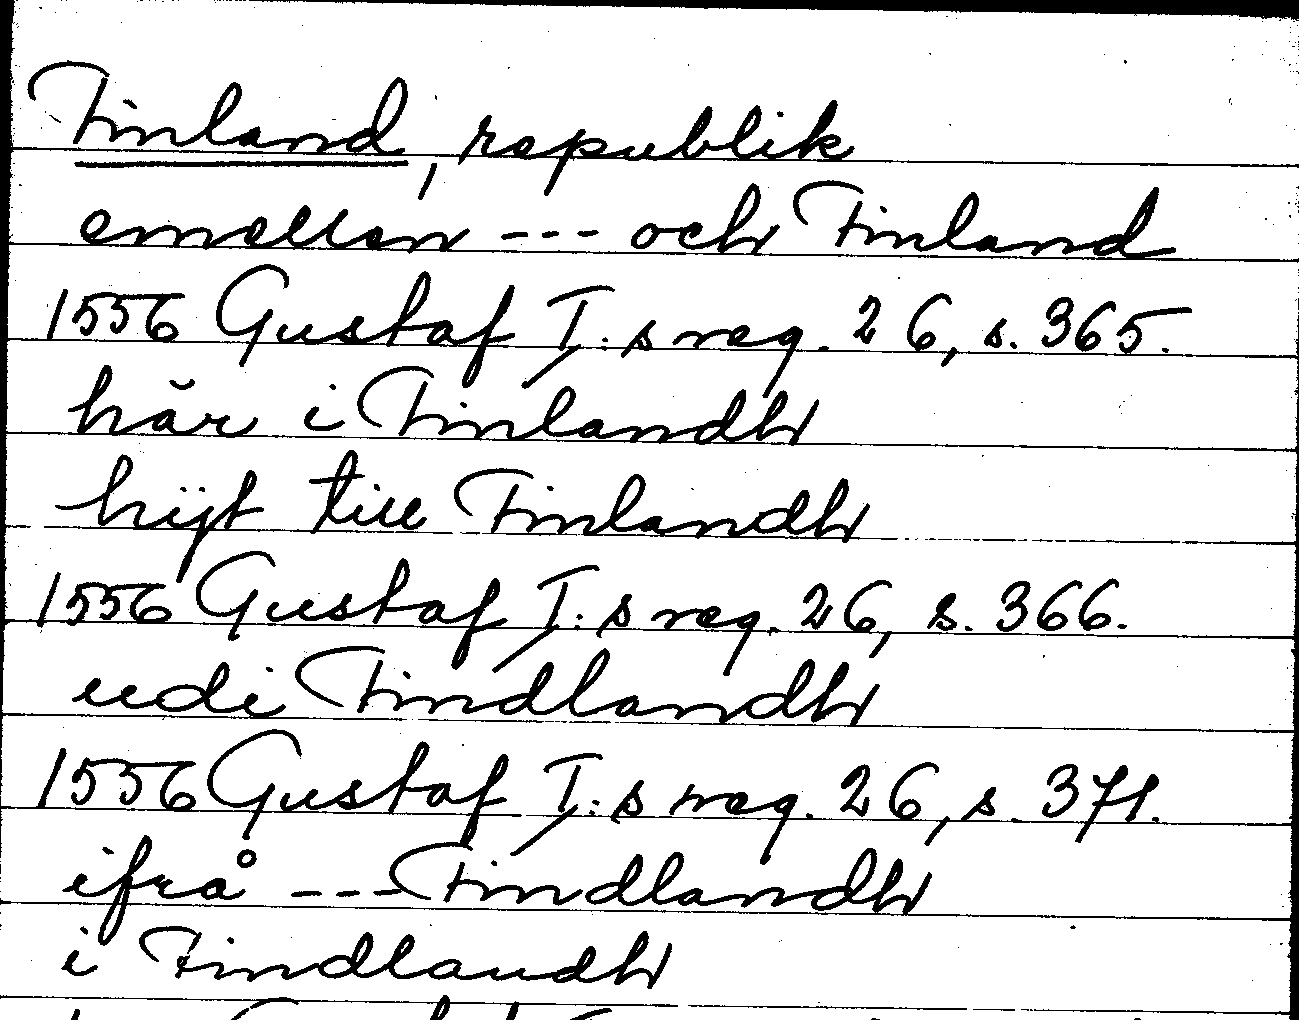 Finland, republik
emellan --- och Finland
1556 Gustaf I:s reg. 26, s. 365.
hăr i Finlandh
hijt till Finlandh
1556 Gustaf I:s reg. 26, s. 366.
udi Findlandh
1556 Gustaf I:s reg. 26, s. 371.
ifrå --- Findlandh
i Findlandh